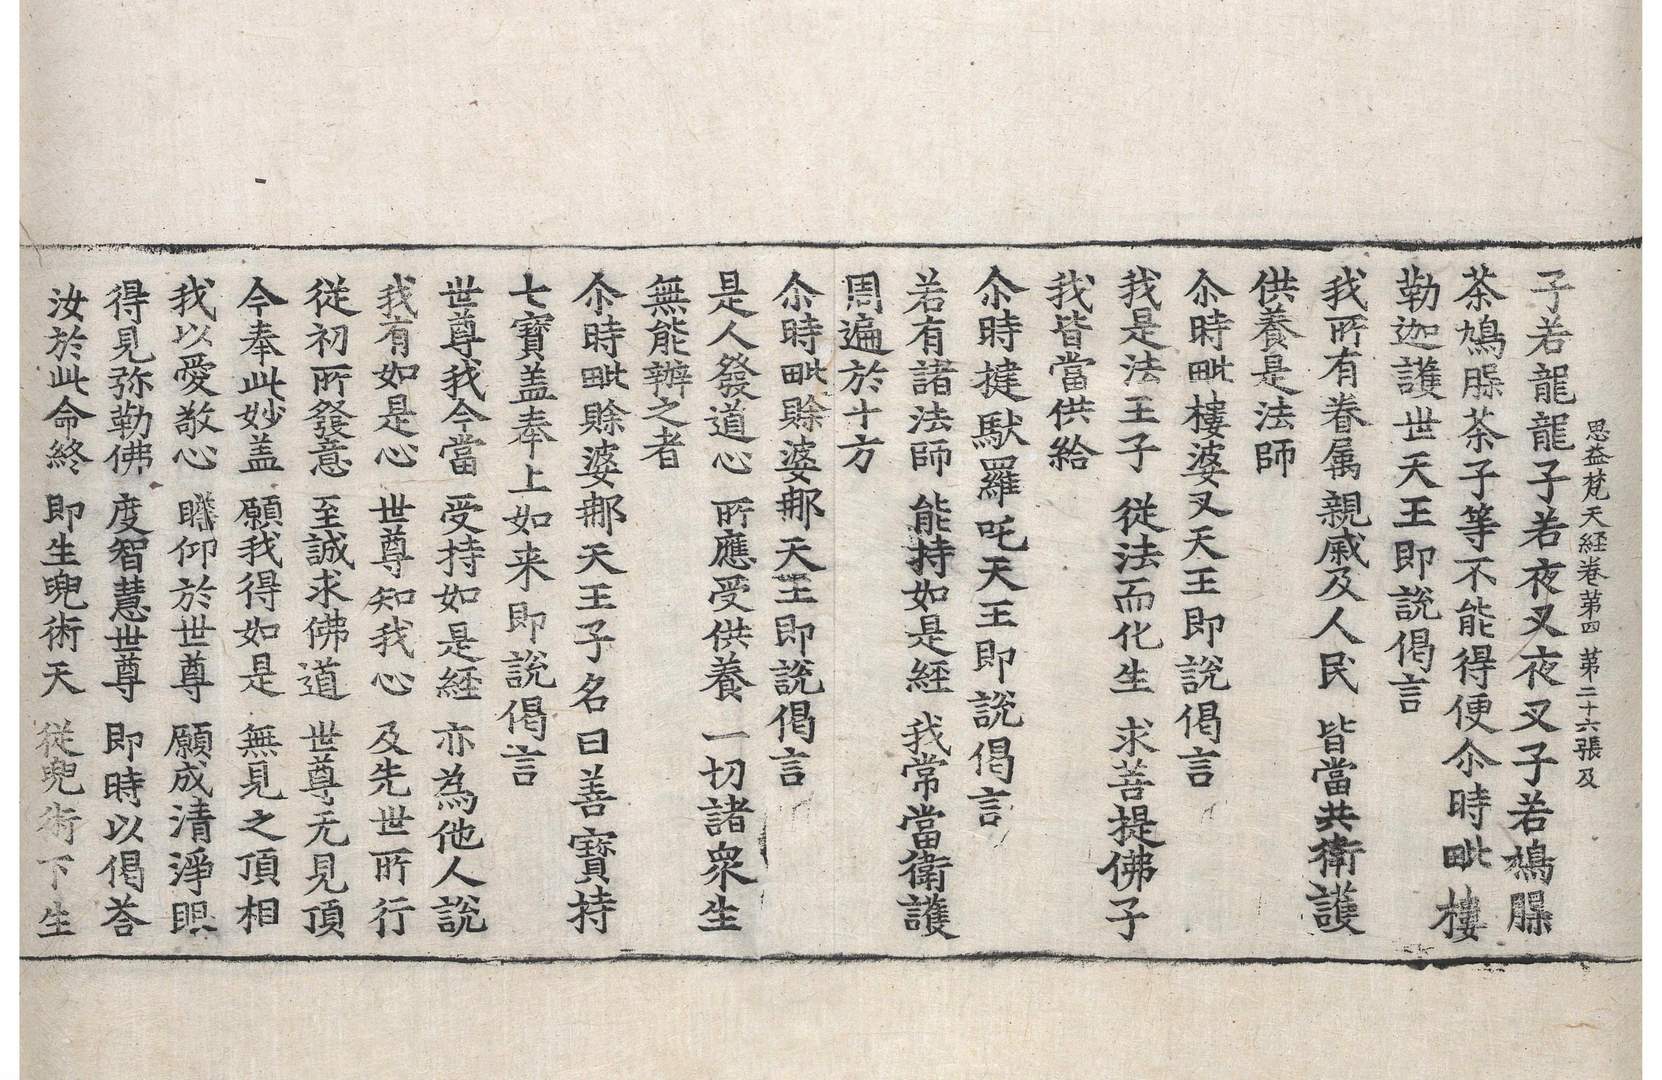 思益梵天経卷第四 第二十六張 及
子若龍龍子若夜叉夜叉子若鳩脲
茶鳩脲茶子等不能得便尒時毗樓
勒迦護世天王即說偈言
我所有眷属 親戚及人民 皆當共衛護
供養是法師
尒時毗樓婆叉天王即說偈言
我是法王子 從法而化生 求菩提佛子
我皆當供給
尒時揵馱羅吒天王即說偈言
若有諸法師 能持如是経 我常當衛護
周遍於十方
尒時毗賖婆那天王即說偈言
是人發道心 所應受供養 一切諸衆生
無能辦之者
尒時毗賖婆那天王子名曰善寶持
七寶盖奉上如来即說偈言
世尊我今當 受持如是経 亦為他人說
我有如是心 世尊知我心 及先世所行
從初所發意 至誠求佛道 世尊无見頂
今奉此妙盖 願我得如是 無見之頂相
我以愛敬心 瞻仰於世尊 願成清淨眼
得見弥勒佛 度智慧世尊 即時以偈荅
汝於此命終 即生兜術天 從兜術下生